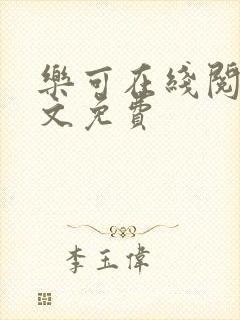 樂可在綫閱
文免費
李玉偉